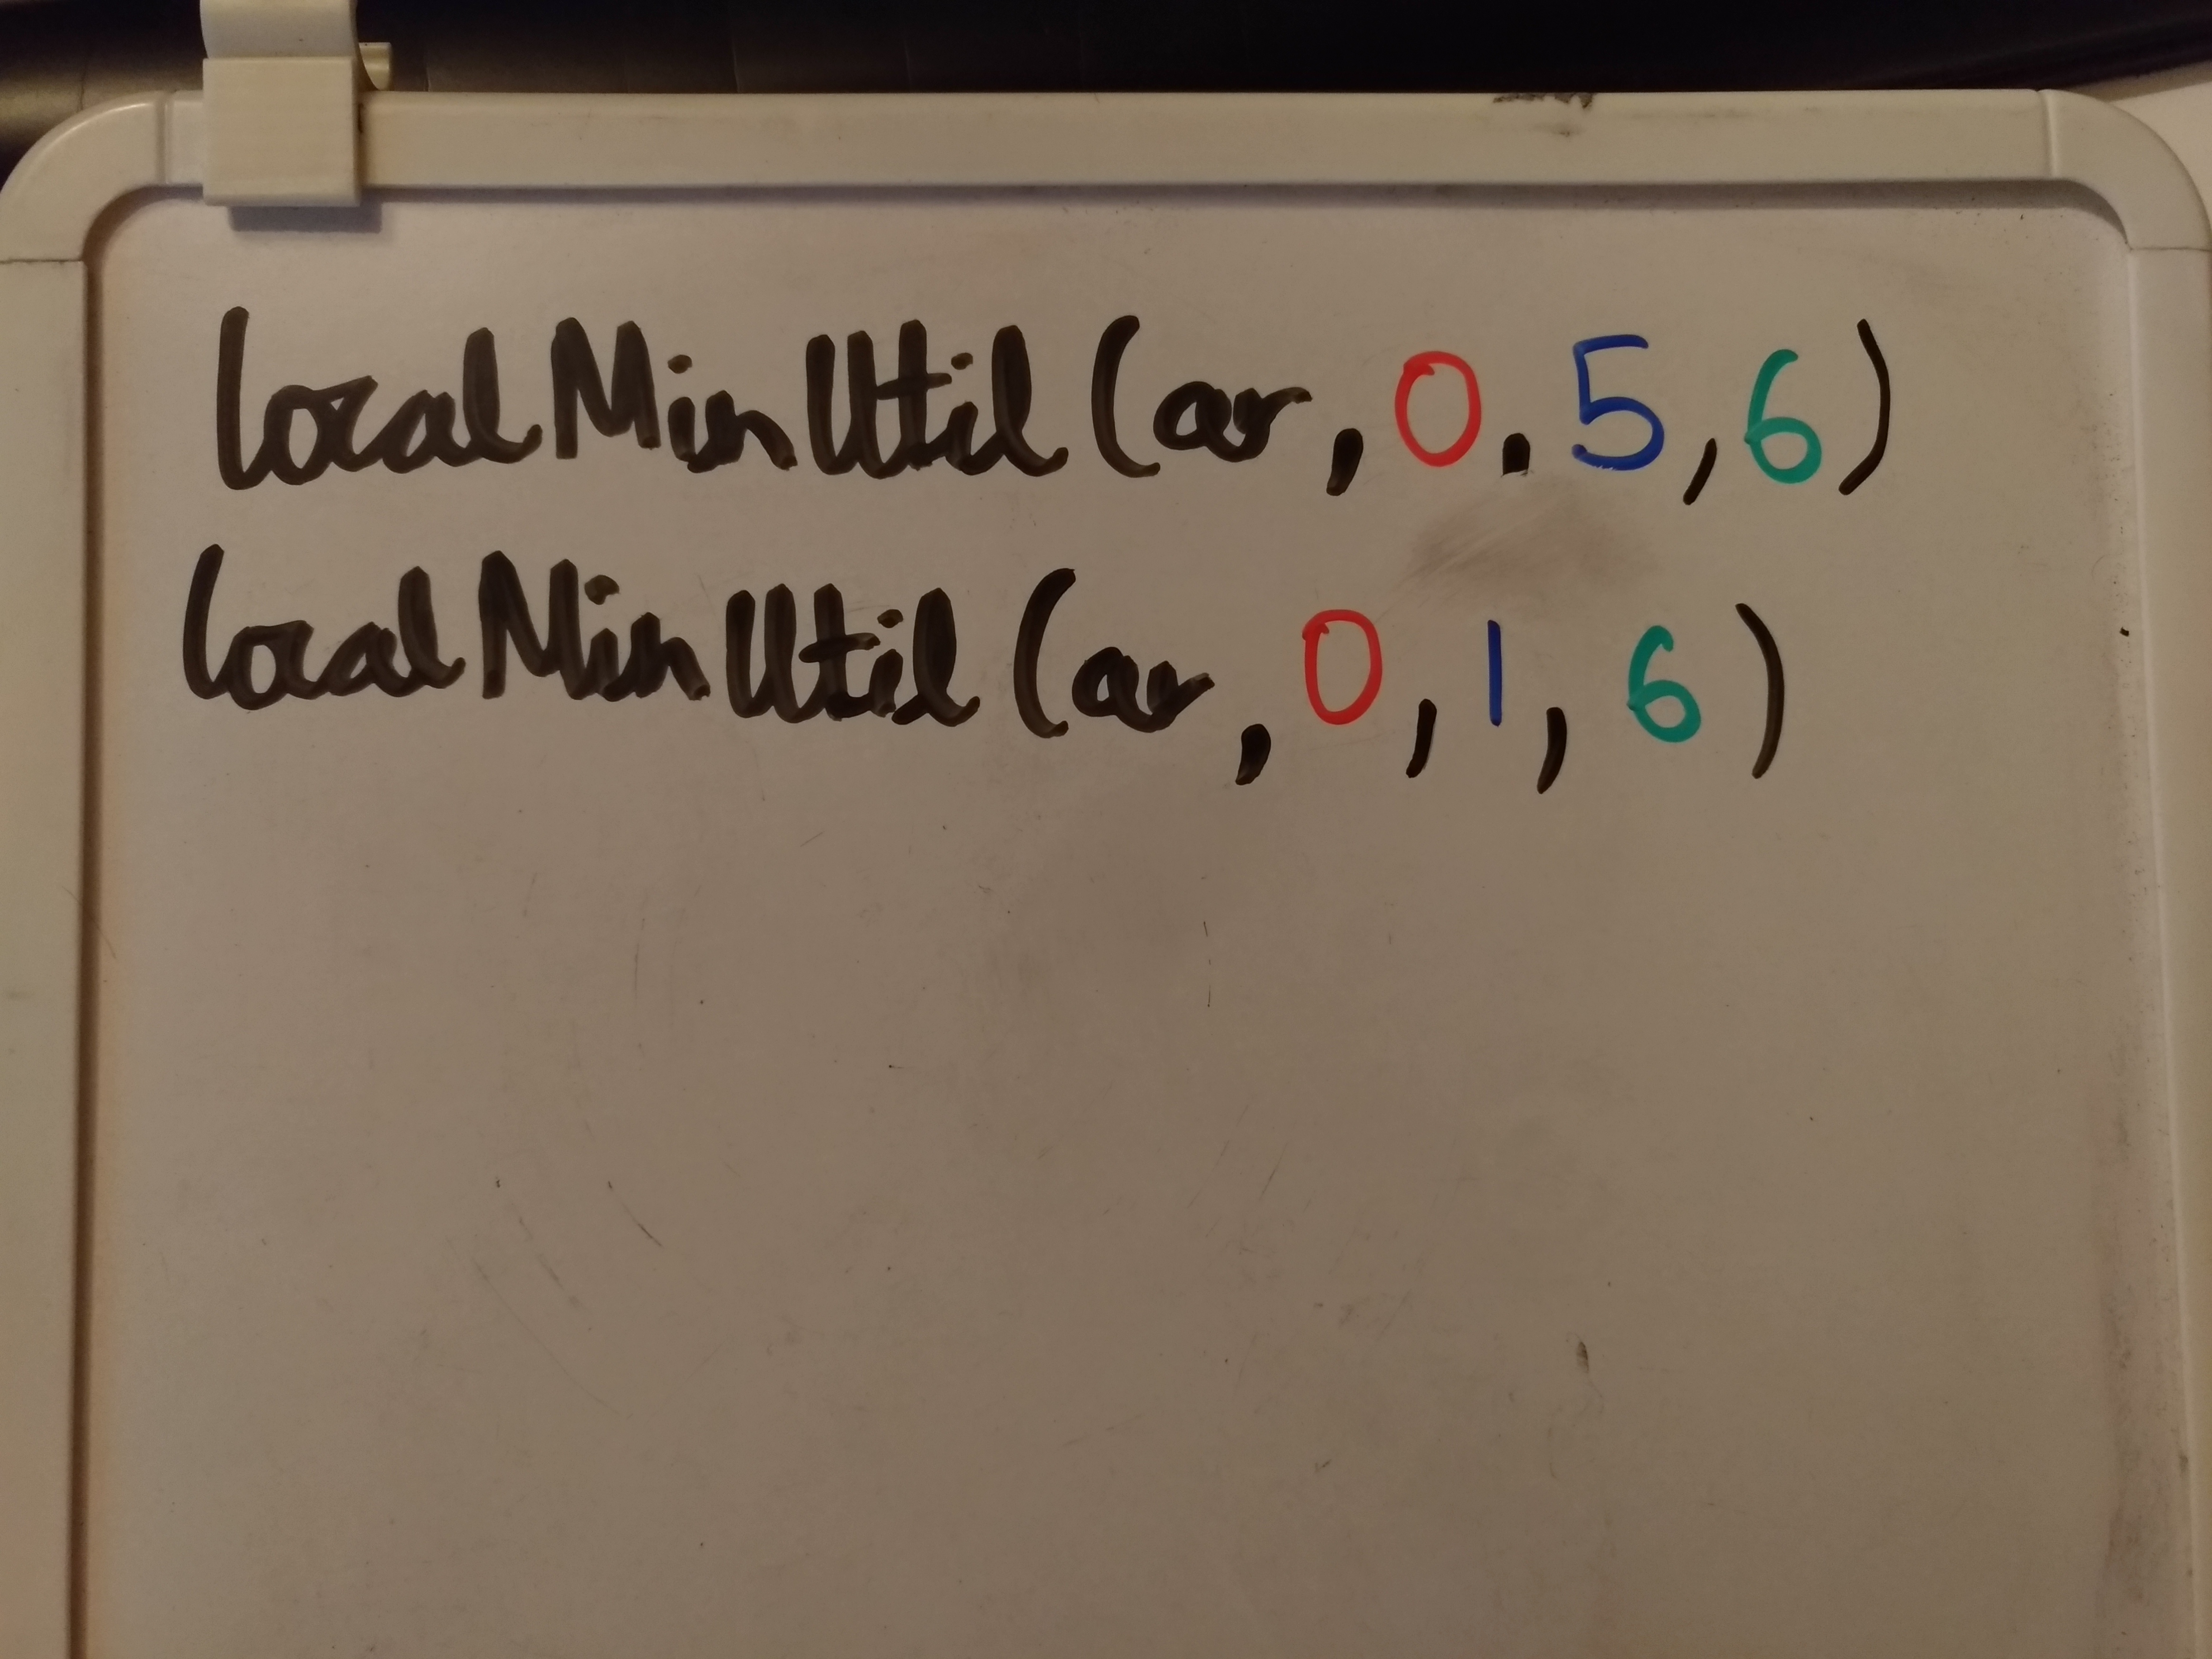 localMinUtil(ar,0,5,6)
localMinUtil(ar,0,1,6)